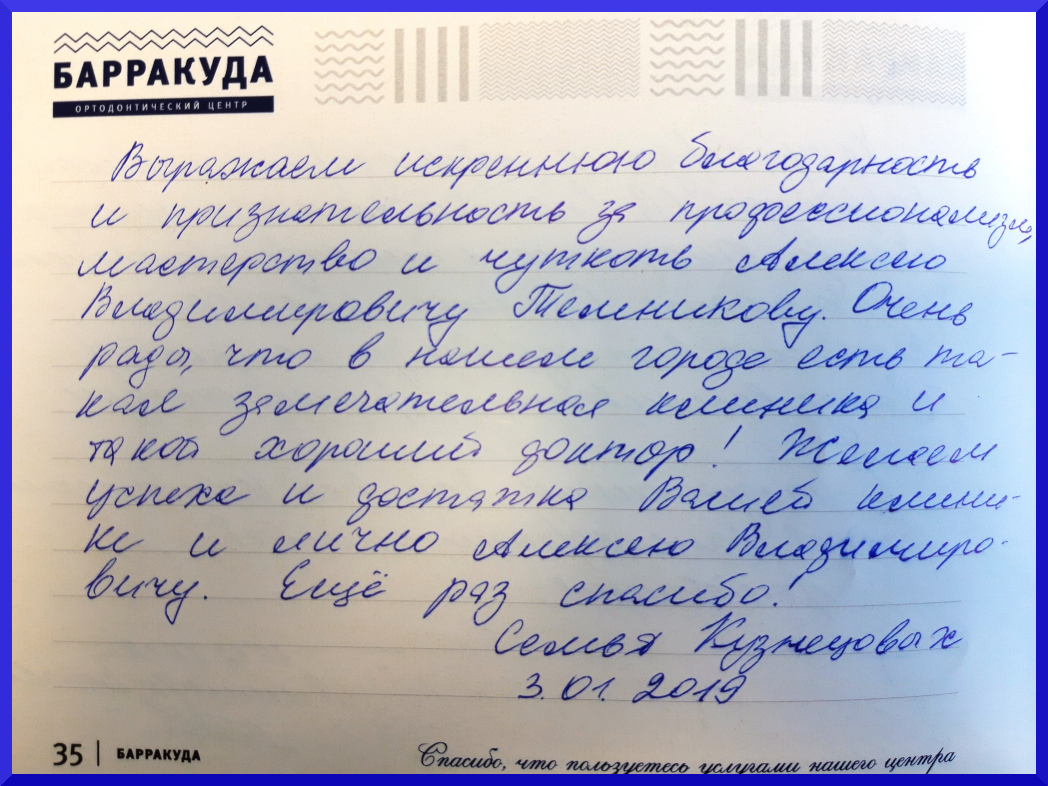 БАРРАКУДА
ОРТОДОНТИЧЕСКИЙ ЦЕНТР
Выражаем искреннюю благодарность
и признательность за профессионализм,
мастерство и чуткость Алексею
Владимировичу Темникову. Очень
рады, что в нашем городе есть та-
кая замечательная клиника и
такой хороший доктор! Желаем
успеха и достатка Вашей клини-
ке и лично Алексею Владимиро-
вичу. Ещё раз спасибо!
Семья Кузнецовых
3.01.2019
35 | БАРРАКУДА
Спасибо, что пользуетесь услугами нашего центра